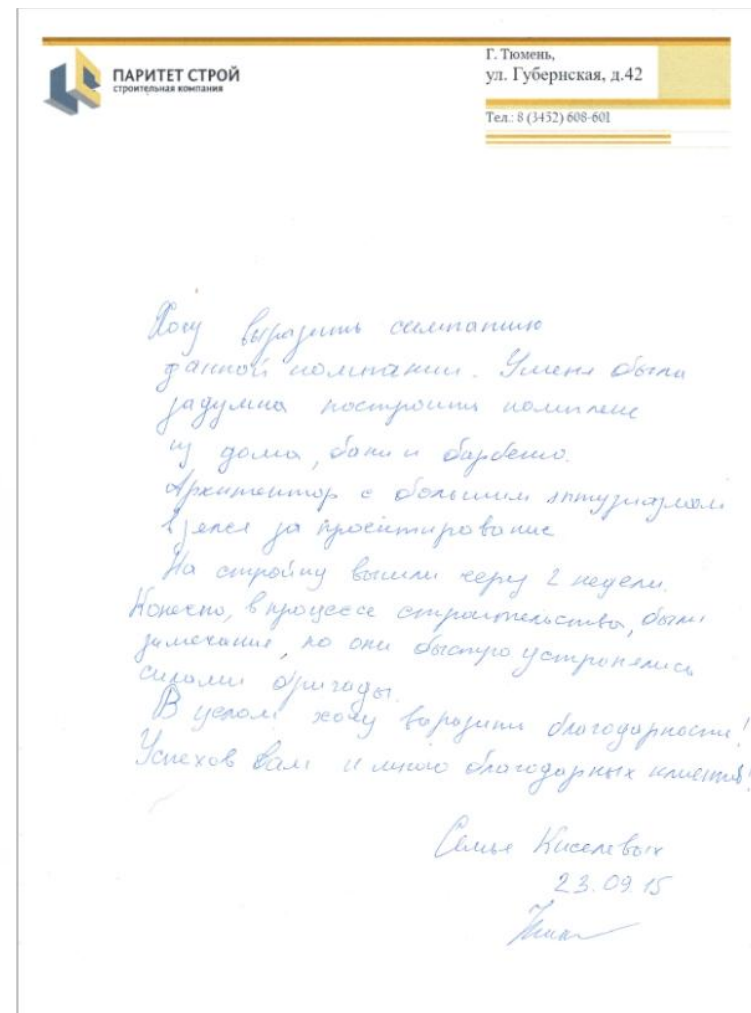 ПАРИТЕТ СТРОЙ
строительная компания
Г. Тюмень,
ул. Губернская, д.42
Тел.: 8 (3452) 608-601
Хочу выразить симпатию
данной компании. У меня была
задумка построить комплекс
из дома, бани и барбекю.
Архитектор с большим энтузиазмом
взялся за проектирование
На стройку вышли через 2 недели.
Конечно, в процессе строительства, были
замечания, но они быстро устранялись
силами бригады.
В целом хочу выразить благодарность!
Успехов Вам и много благодарных клиентов!
Семья Киселевых
23.09.15